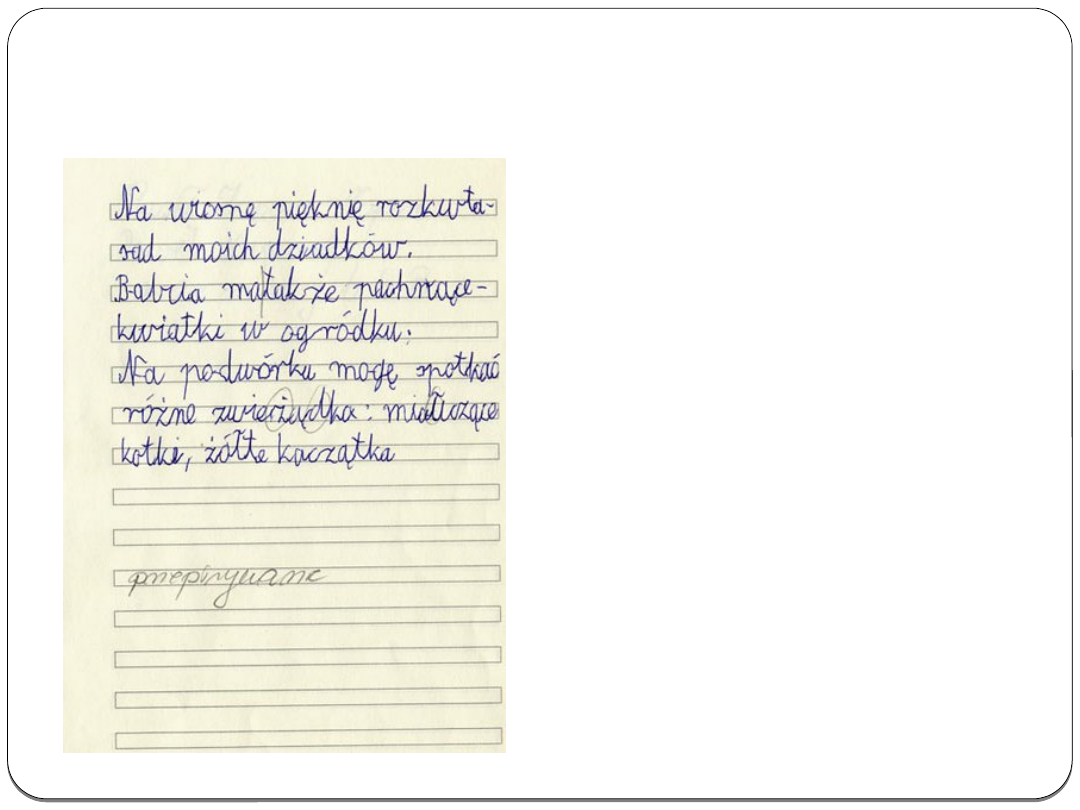 Na wiosnę pięknię rozkwta-
sad moich dziadków.
Babcia ma także pachnące-
kwiatki w ogródku:
Na podwórku mogę spotkać
różne zwierżądka: miałuczące
kotki, żółte kaczątka
przepisywane